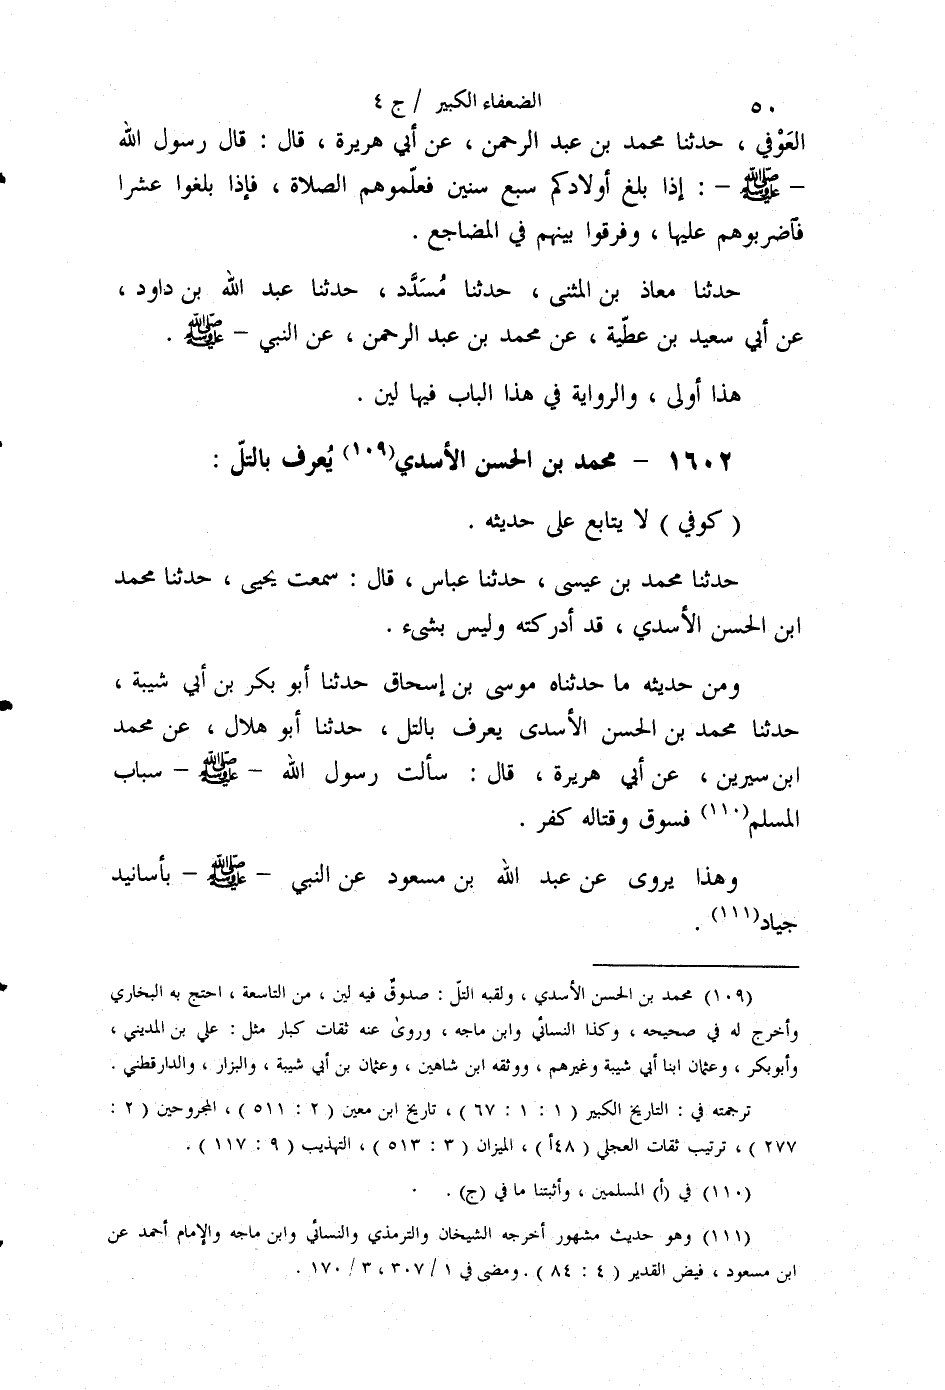 ٥٠ الضعفاء الكبير / ج ٤
العَوْفي ، حدثنا محمد بن عبد الرحمن ، عن أبي هريرة ، قال : قال رسول الله
– ﷺ – : إذا بلغ أولادكم سبع سنين فعلّموهم الصلاة ، فإذا بلغوا عشرا
فآضربوهم عليها ، وفرقوا بينهم في المضاجع .
حدثنا معاذ بن المثنى ، حدثنا مُسَدَّد ، حدثنا عبد الله بن داود ،
عن أبي سعيد بن عطّية ، عن محمد بن عبد الرحمن ، عن النبي – ﷺ .
هذا أولى ، والرواية في هذا الباب فيها لين .
١٦٠٢ – محمد بن الحسن الأسدي(١٠٩) يُعرف بالتلّ :
( كوفي ) لا يتابع على حديثه .
حدثنا محمد بن عيسى ، حدثنا عباس ، قال : سمعت يحيى ، حدثنا محمد
ابن الحسن الأسدي ، قد أدركته وليس بشىء .
ومن حديثه ما حدثناه موسى بن إسحاق حدثنا أبو بكر بن أبي شيبة ،
حدثنا محمد بن الحسن الأسدى يعرف بالتل ، حدثنا أبو هلال ، عن محمد
ابن سيرين ، عن أبي هريرة ، قال : سألت رسول الله – ﷺ – سباب
المسلم(١١٠) فسوق وقتاله كفر .
وهذا يروى عن عبد الله بن مسعود عن النبي – ﷺ – بأسانيد
جياد(١١١) .
(١٠٩) محمد بن الحسن الأسدي ، ولقبه التلّ : صدوقٌ فيه لين ، من التاسعة ، احتج به البخاري
وأخرج له في صحيحه ، وكذا النسائي وابن ماجه ، وروىٰ عنه ثقات كبار مثل : علي بن المديني ،
وأبوبكر ، وعثمان ابنا أبي شيبة وغيرهم ، ووثقه ابن شاهين ، وعثمان بن أبي شيبة ، والبزار ، والدارقطني .
ترجمته في : التاريخ الكبير ( ١ : ١ : ٦٧ ) ، تاريخ ابن معين ( ٢ : ٥١١ ) ، المجروحين ( ٢ :
٢٧٧ ) ، ترتيب ثقات العجلي ( ٤٨أ ) ، الميزان ( ٣ : ٥١٣ ) ، التهذيب ( ٩ : ١١٧ ) .
(١١٠) في (أ) المسلمين ، وأثبتنا ما في (ج) .
(١١١) وهو حديث مشهور أخرجه الشيخان والترمذي والنسائي وابن ماجه والإمام أحمد عن
ابن مسعود ، فيض القدير ( ٤ : ٨٤ ) . ومضى في ١ / ٣٠٧ ، ٣ / ١٧٠ .